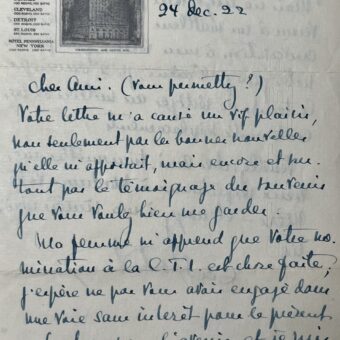 CLEVELAND
DETROIT
ST. LOUIS
HOTEL PENNSYLVANIA
NEW YORK
24 Dec. 22
Cher Ami. (vous permettez ?)
Votre lettre m'a causé un vif plaisir,
non seulement par les bonnes nouvelles
qu'elle m'apportait, mais encore et sur-
tout par le témoignage du souvenir
que vous voulez bien me garder.
Ma femme m'apprend que votre no-
mination à la C.T.I. est chose faite,
j'espère ne pas vous avoir engagé dans
une voie sans intérêt pour le présent